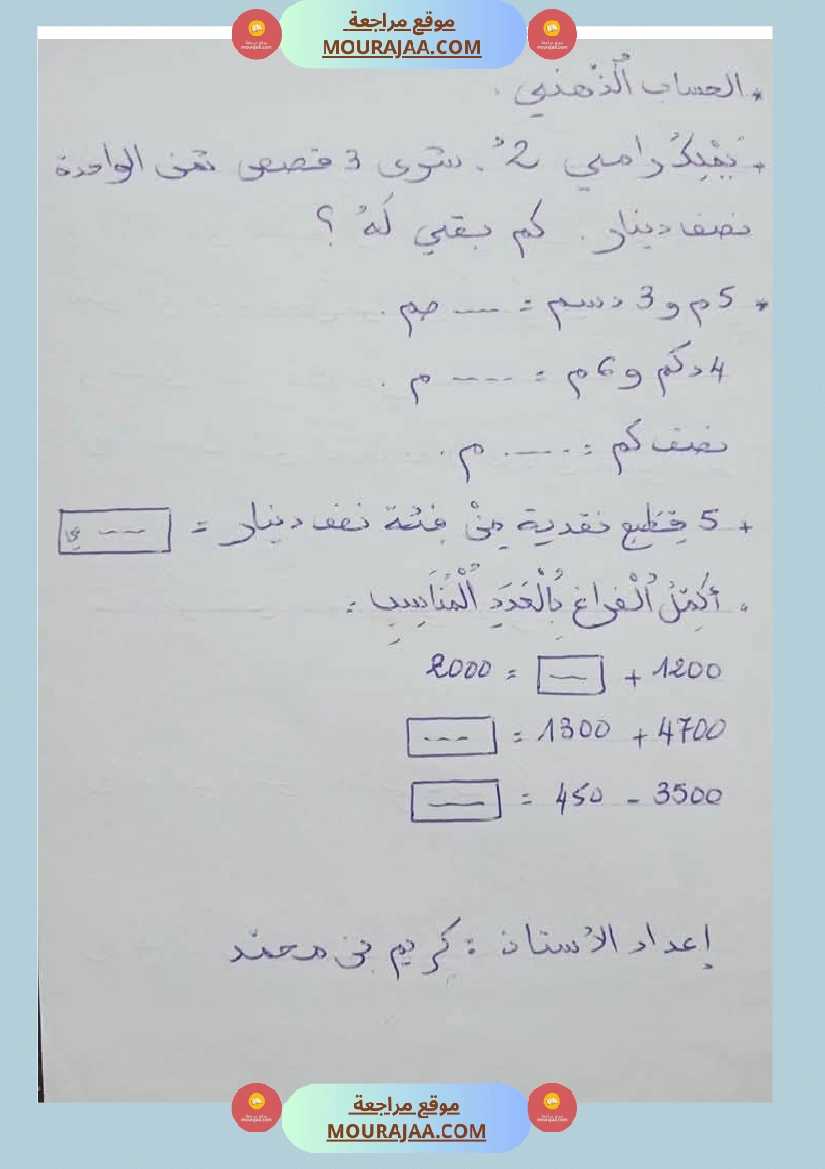 موقع مراجعة
MOURAJAA.COM
* الحساب الذهني .
+ يَمْلِكُ رامي 2د . شرى 3 قصص ثمن الواحدة
نصف دينار . كم بقي لَهُ ؟
* 5م و 3 دسم = ---- صم .
4دكم و 6م = ---- م .
نصف كم = ---- م .
+ 5 قِطَعٍ نقدية مِنْ فئة نصف دينار = ---- ي
. أُكَمِّلُ الْفراغ بِالْعَدَدِ الْمُنَاسِبِ :
1200 + ---- = 2000
4700 + 1300 = ----
3500 - 450 = ----
إعداد الأستاذ : كريم بن محمد
موقع مراجعة
MOURAJAA.COM